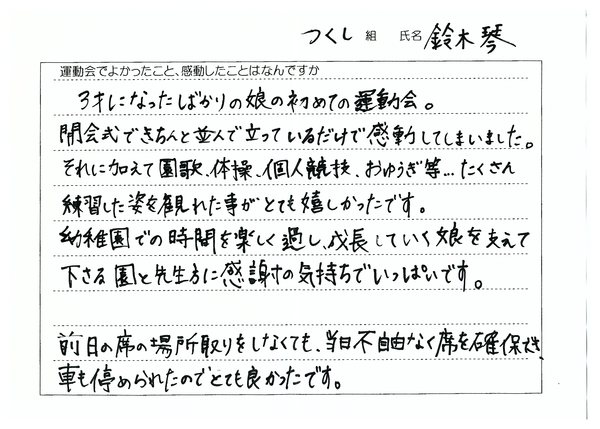 つくし 組 氏名 鈴木 琴
運動会でよかったこと、感動したことはなんですか
3才になったばかりの娘の初めての運動会。
開会式できちんと並んで立っているだけで感動してしまいました。
それに加えて園歌、体操、個人競技、おゆうぎ等…たくさん
練習した姿を観れた事がとても嬉しかったです。
幼稚園での時間を楽しく過し、成長していく娘を支えて
下さる園と先生方に感謝の気持ちでいっぱいです。
前日の席の場所取りをしなくても、当日不自由なく席を確保でき、
車も停められたのでとても良かったです。